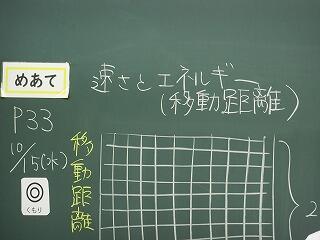 めあて
速さとエネルギー
(移動距離)
P33
10/15(水)
くもり
移動距離
2